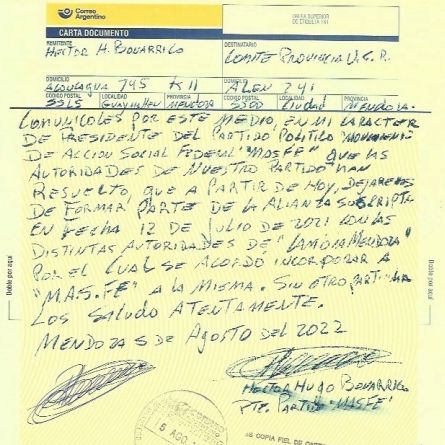 Correo
Argentino
CARTA DOCUMENTO
REMITENTE
DESTINATARIO
HECTOR H. BONARRICO
COMITE PROVINCIA U.C.R.
DOMICILIO
DOMICILIO
ACONCAGUA 795 K11
ALEM 241
CODIGO POSTAL LOCALIDAD PROVINCIA CODIGO POSTAL LOCALIDAD PROVINCIA
MENDOZA 5500 CIUDAD MENDOZA.
COMUNICOLES POR ESTE MEDIO, EN MI CARACTER
DE PRESIDENTE DEL PARTIDO POLITICO MOVIMIENTO
DE ACCION SOCIAL FEDERAL "MASFE" QUE LAS
AUTORIDADES DE NUESTRO PARTIDO HAN
RESUELTO, QUE A PARTIR DE HOY, DEJAREMOS
DE FORMAR PARTE DE LA ALIANZA SUSCRIPTA
EN FECHA 12 DE JULIO DE 2021 CON LAS
DISTINTAS AUTORIDADES DE "CAMBIA MENDOZA"
POR EL CUAL SE ACORDO INCORPORAR A
"MAS.FE" A LA MISMA. SIN OTRO PARTICULAR
LOS SALUDO ATENTAMENTE.
MENDOZA 5 DE AGOSTO DEL 2022
HECTOR HUGO BONARRICO
PTE. PARTIDO "MASFE"
6 AGO
ES COPIA FIEL DE CARTA
Doble por aquí
Doble por aquí